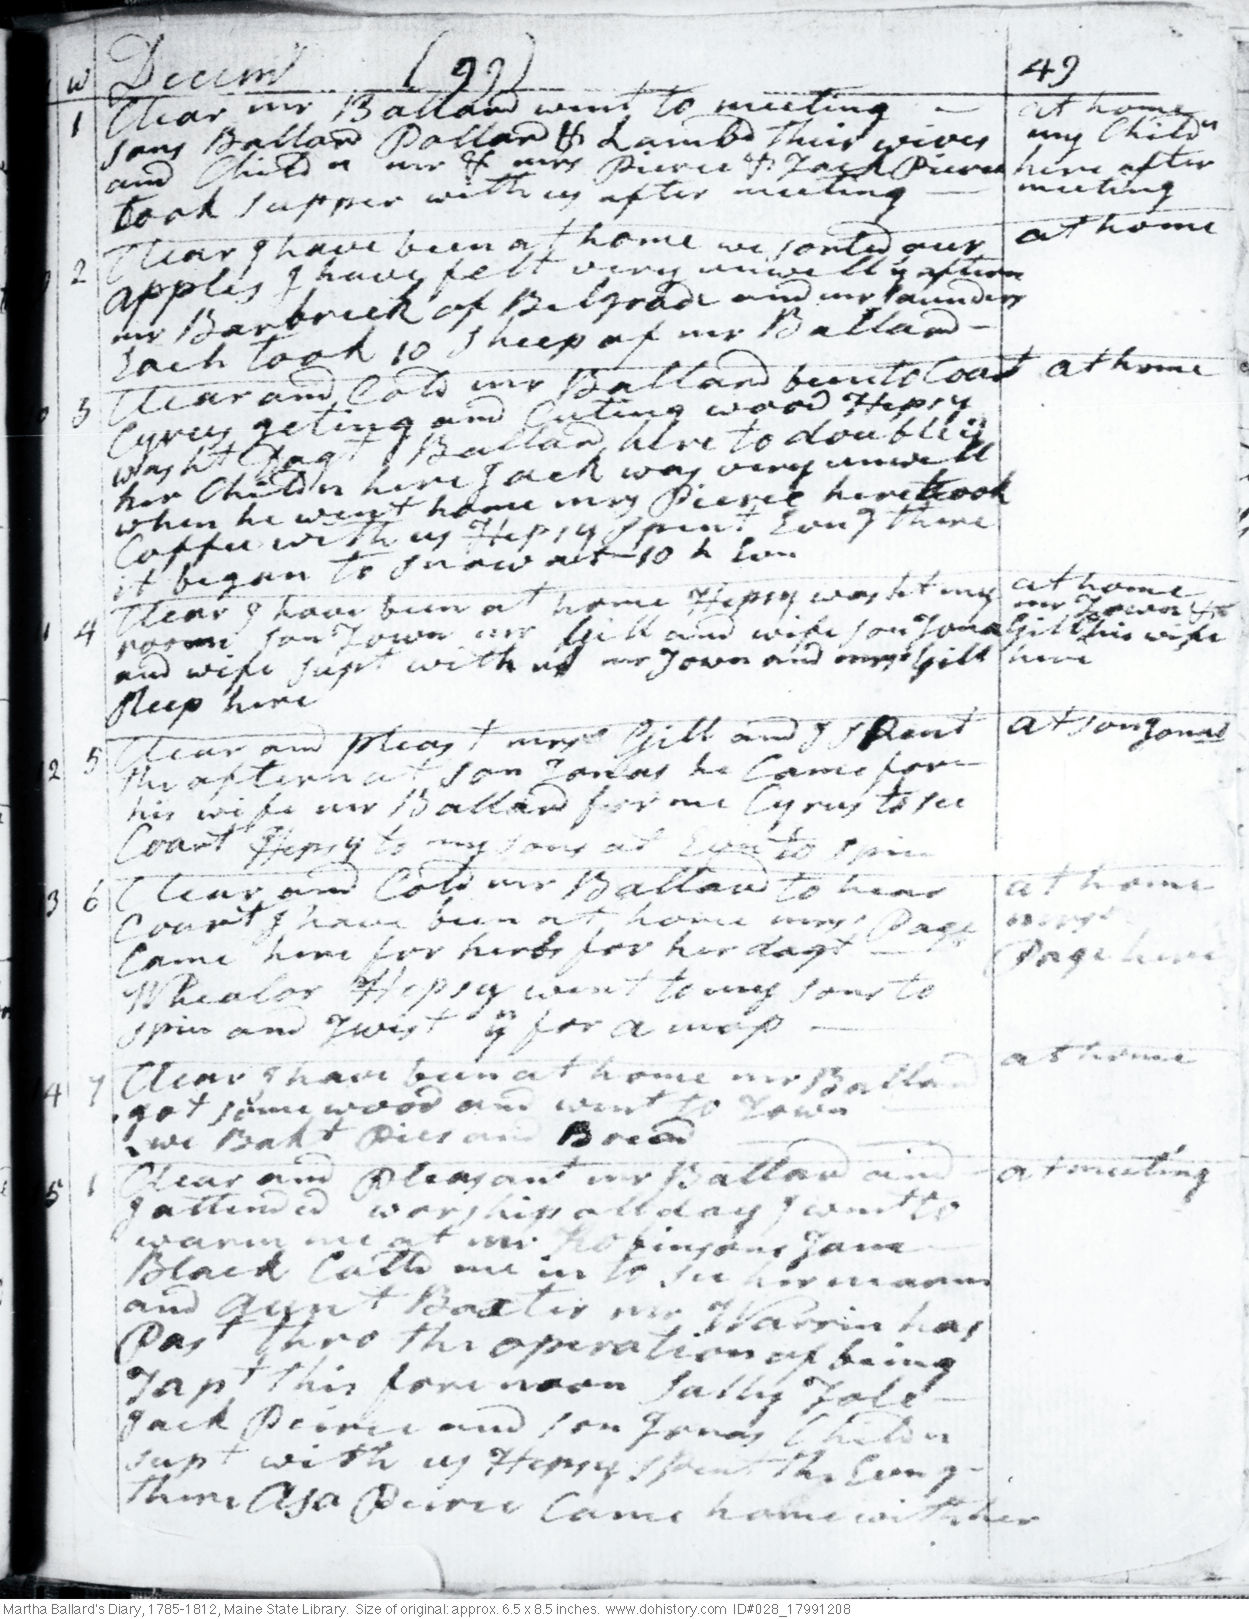 w Decemr (99) 49
1 Clear mr Ballard went to meeting — at home
sons Ballard Pollard & Lambd their wives my Childn
and Childn mr & mrs Pierce & Jack Pierce here after
took supper with us after meeting — meeting
2 Clear I have been at home we sorted our at home
apples I have felt very unwell ys aftern
mr Barbrick of Belgrade and mr Saunders
Each took 10 Sheep of mr Ballard —
3 Clear and Cold mr Ballard been to Coart at home
Cyrus geting and Cuting wood Hepsy
washt Dagt Ballard here to double
her Childn here Jack was very unwell
when he went home mrs Pierce here took
Coffee with us Hepsy Spent Evng there
it began to snow at 10 h Evn
4 Clear I have been at home Hepsy washt my at home
room son Town mr Gill and wife son Jona mr Town &
and wife supt with us mr Town and mrs Gill Gill his wife
sleep here here
12 5 Clear and pleast mrs Gill and I spent at son Jonas
the aftern at son Jonas he Came for
his wife mr Ballard for me Cyrus to see
Coart Hepsy to my sons at Evn to spin
13 6 Clear and Cold mr Ballard to hear at home
Coart I have been at home mrs Page mrs
Came here for herbs for her dagt — Page here
Whealor Hepsy went to my sons to
spin and Twist for a mop —
14 7 Clear I have been at home mr Ballard at home
got some wood and went to Town
we Bakt Pies and Bread
15 1 Clear and Pleasant mr Ballard and at meeting
I attended worship all day I went to
warm me at mr Robinsons Jane
Black Calld me in to see her marm
and aunt Baxter mr Warrin has
Past thro the operation of being
Tapt this forenoon Sally
Jack Peirce and son Jonas Childn
supt with us Hepsy Spent the Evng
there Asa Peirce Came home with her
Martha Ballard's Diary, 1785-1812, Maine State Library. Size of original: approx. 6.5 x 8.5 inches. www.dohistory.com ID#028_17991208